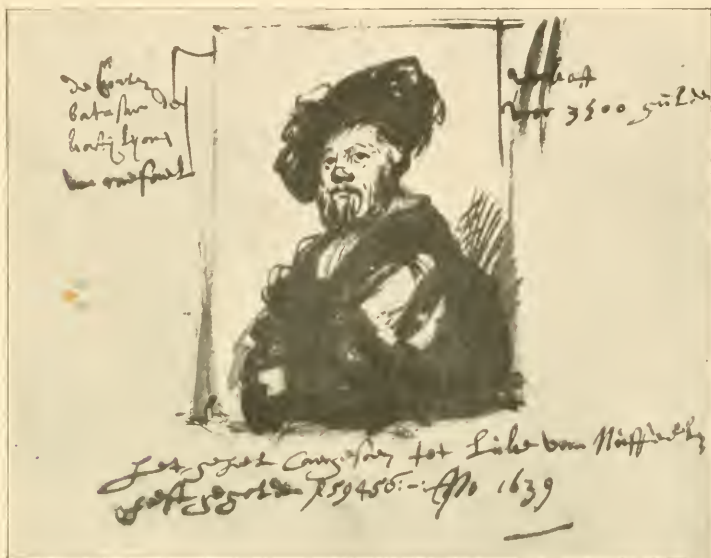 de Conte
batasar de
kastylyone
van raefael
verkoft
voor 3500 gulden
het geheel Caergesoen tot Luke van Nuffeelen
heeft gegolden f 59456:-: Ano 1639